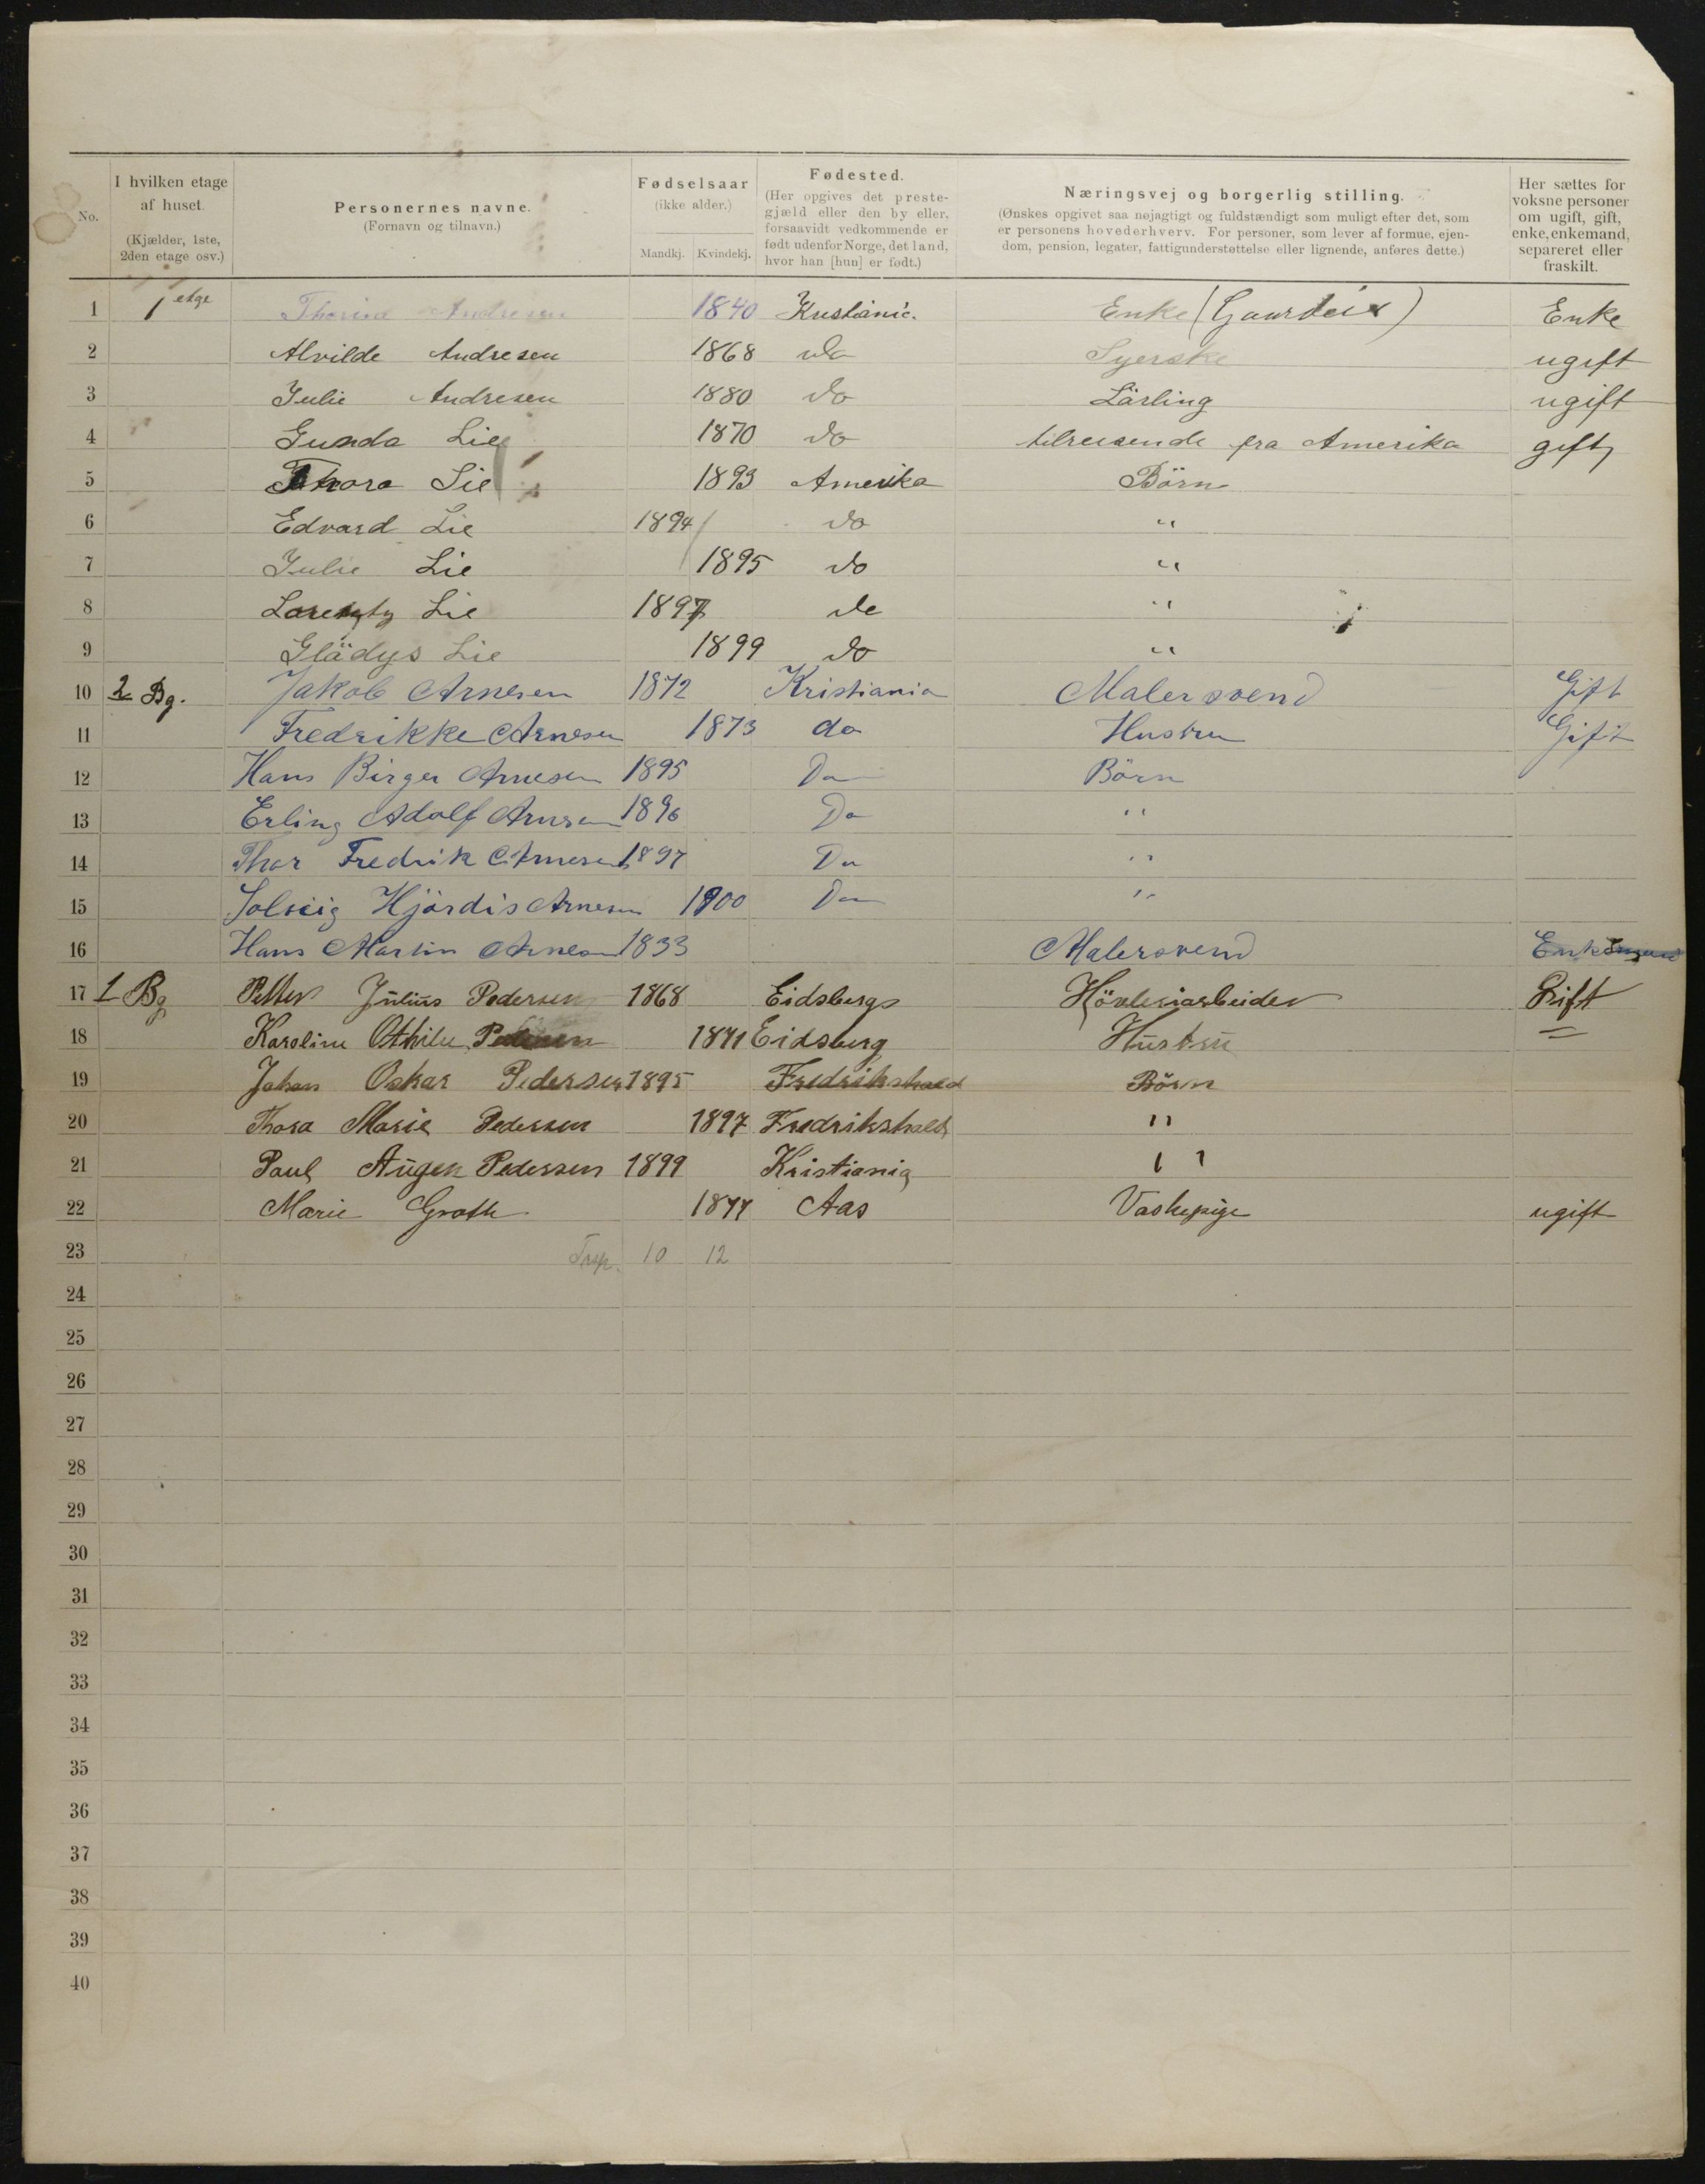 No.
I hvilken etage af huset. (Kjælder, 1ste, 2den etage osv.)
Personernes navne. (Fornavn og tilnavn.)
Fødselsaar (ikke alder.) Mandkj. Kvindekj.
Fødested. (Her opgives det prestegjæld eller den by eller, forsaavidt vedkommende er født udenfor Norge, det land, hvor han [hun] er født.)
Næringsvej og borgerlig stilling. (Ønskes opgivet saa nøjagtigt og fuldstændigt som muligt efter det, som er personens hovederhverv. For personer, som lever af formue, ejendom, pension, legater, fattigunderstøttelse eller lignende, anføres dette.)
Her sættes for voksne personer om ugift, gift, enke, enkemand, separeret eller fraskilt.
1 1 etge Andresen 1840 Kristiania Enke Enke
2 Alvilde Andresen 1868 do Syerske ugift
3 Julie Andresen 1880 do Lärling ugift
4 Gunda Lie 1870 do tilreisende fra Amerika gift
5 Thora Lie 1893 Amerika Börn
6 Edvard Lie 1894 do "
7 Julie Lie 1895 do "
8 Lie 1897 do "
9 Glädys Lie 1899 do "
10 2 Bg. Jakob Arnesen 1872 Kristiania Malersvend Gift
11 Fredrikke Arnesen 1873 do Hustru Gift
12 Hans Birger Arnesen 1895 Do Börn
13 Erling Adolf Arnesen 1896 Do "
14 Thor Fredrik Arnesen 1897 Do "
15 Solveig Hjördis Arnesen 1900 Do "
16 Hans Martin Arnesen 1833 Malersvend Enkemand
17 1 Bg Petter Julius Pedersen 1868 Eidsberg Hövleriarbeider Gift
18 Karoline Othilie Pedersen 1871 Eidsberg Hustru =
19 Johan Oskar Pedersen 1895 Fredrikshald Börn
20 Thora Marie Pedersen 1897 Fredrikshald "
21 Paul Augen Pedersen 1899 Kristiania "
22 Marie Groth 1877 Aas Vaskepige ugift
23 10 12
24
25
26
27
28
29
30
31
32
33
34
35
36
37
38
39
40